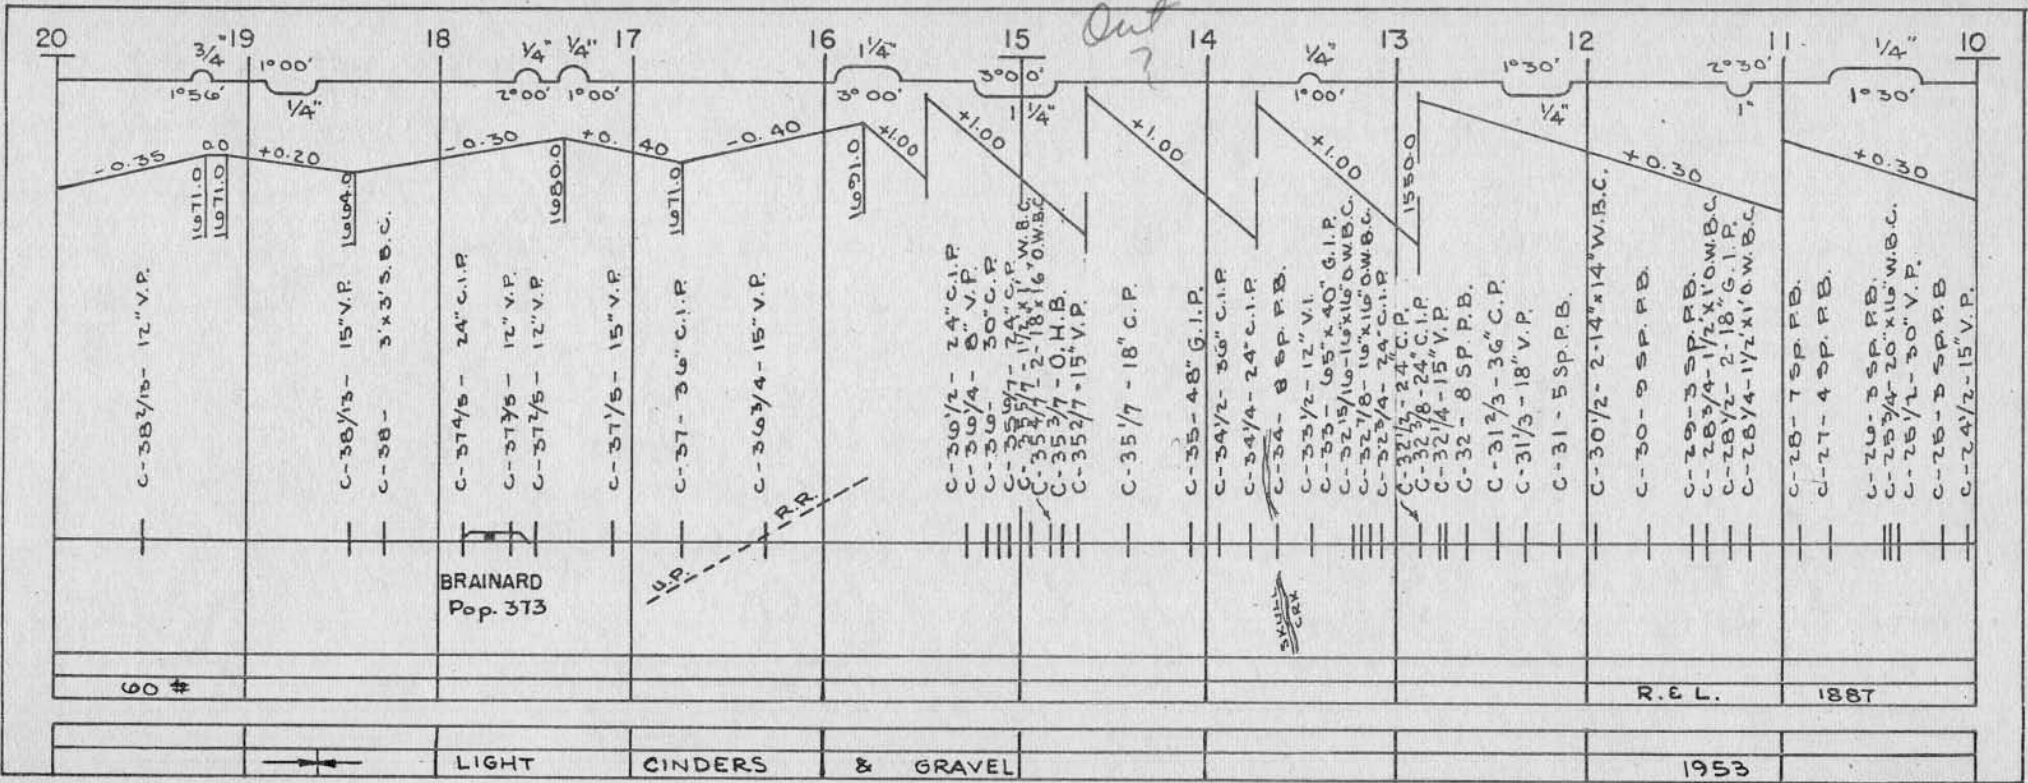 Out
?
20 19 18 17 16 15 14 13 12 11 10
3/4" 1°00' 1/4" 1/4" 1 1/4" 3°00' 1/4" 1°30' 2°30' 1/4"
1°56' 1/4" 2°00' 1°00' 3°00' 1 1/4" 1°00' 1/4" 1" 1°30'
-0.35 0.0 +0.20 -0.30 +0.40 -0.40 +1.00 +1.00 +1.00 +1.00 +0.30 +0.30
1671.0
1671.0
1664.0
1680.0
1671.0
1691.0
1550.0
C-38 2/13- 12" V.P.
C-38 1/13- 15" V.P.
C-38- 3'x3' S.B.C.
C-37 4/5- 24" C.I.P.
C-37 3/5- 12" V.P.
C-37 2/5- 12" V.P.
C-37 1/5- 15" V.P.
C-37- 36" C.I.P.
C-36 3/4- 15" V.P.
C-36 1/2- 24" C.I.P.
C-36 1/4- 8" V.P.
C-36- 30" C.P.
C-35 6/7- 24" C.P.
C-35 5/7- 1 1/2'x1' W.B.C.
C-35 4/7-2-18"x16" O.W.B.C.
C-35 3/7- O.H.B.
C-35 2/7-15" V.P.
C-35 1/7-18" C.P.
C-35-48" G.I.P.
C-34 1/2-36" C.I.P.
C-34 1/4-24" C.I.P.
C-34- 8 SP. P.B.
C-33 1/2-12" V.I.
C-33- 65"x40" G.I.P.
C-32 15/16-16"x16" O.W.B.C.
C-32 7/8-16"x16" O.W.B.C.
C-32 3/4-24" C.I.P.
C-32 1/2-24" C.P.
C-32 3/8-24" C.I.P.
C-32 1/4-15" V.P.
C-32- 8 SP. P.B.
C-31 2/3-36" C.P.
C-31 1/3-18" V.P.
C-31-5 SP.P.B.
C-30 1/2-2-14"x14" W.B.C.
C-30-9 SP. P.B.
C-29-3 SP. P.B.
C-28 3/4-1 1/2'x1' O.W.B.C.
C-28 1/2- 2-18" G.I.P.
C-28 1/4-1 1/2'x1' O.W.B.C.
C-28- 7 SP. P.B.
C-27- 4 SP. P.B.
C-26-3 SP. P.B.
C-25 3/4-20"x16" W.B.C.
C-25 1/2-30" V.P.
C-25-3 SP. P.B
C-24 1/2-15" V.P.
U.P. R.R.
BRAINARD
Pop. 373
SKULL
CRK
60 # R. & L. 1887
LIGHT CINDERS & GRAVEL 1953